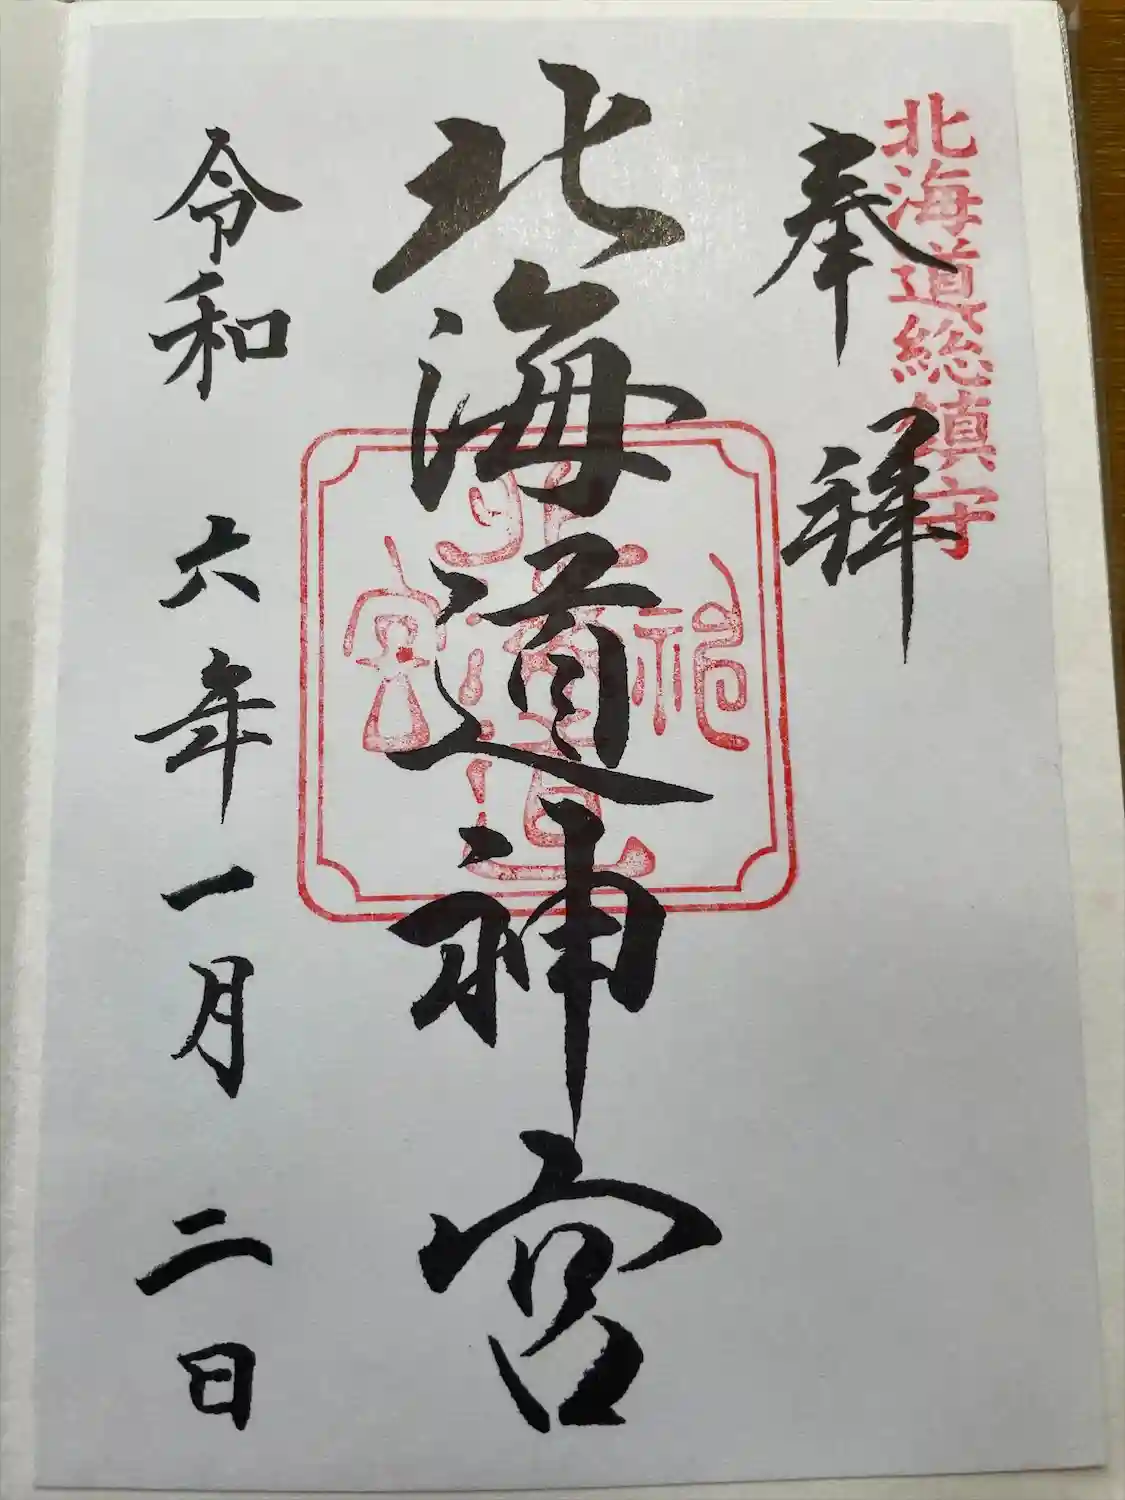 北海道総鎮守
奉拝
北海道神宮
北海道神宮
令和六年一月二日